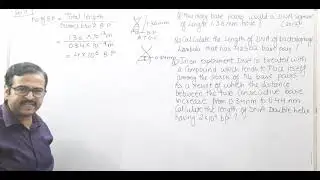 No of BP = Total length
1.36 × 10⁻³ m
0.34 × 10⁻⁹ m
= 4 × 10⁶ B.P
1.36mm
0.34nm
1) How many base pairs would a DNA segment
of length 1.36 mm have?
2) Calculate the length of DNA of bacteriophage
Lambda that has 48502 base pairs?
3) In an experiment DNA is treated with
a compound which tends to place itself
among the stack of the base pairs.
As a result of which the distance
between the two consecutive base
increase from 0.34nm to 0.44 nm
Calculate the length of DNA Double helix
having 2×10⁶ bp?